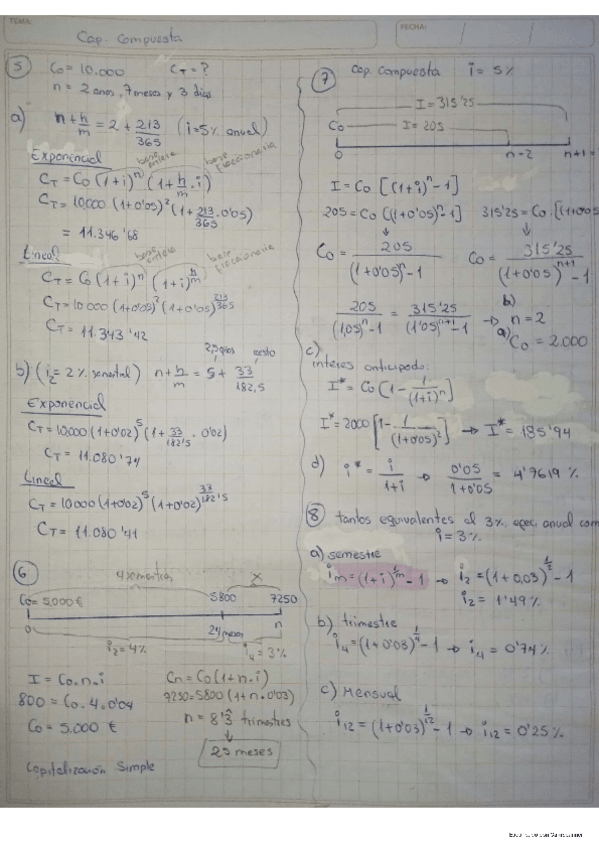 TEMA:
Cap. Compuesta
FECHA:
5
Co = 10.000    CT = ?
n = 2 anos, 7 meses y 3 dias
a) n + h/m = 2 + 213/365 (i = 5% anual)
Exponencial
base entera
base fraccionaria
CT = Co (1+i)^n (1 + h/m . i)
CT = 10.000 (1+0'05)^2 (1 + 213/365 . 0'05)
= 11.346'68
Lineal
base entera
base fraccionaria
CT = Co (1+i)^n (1+i)^h/m
CT = 10000 (1+0'05)^2 (1+0'05)^213/365
CT = 11.343'42
2,5 años    resto
b) (i2 = 2% semestral) n + h/m = 5 + 33/182,5
Exponencial
CT = 10000 (1+0'02)^5 (1 + 33/182'5 . 0'02)
CT = 11.080'74
Lineal
CT = 10000 (1+0'02)^5 (1+0'02)^33/182'5
CT = 11.080'41
6
x
Co = 5.000 €    5800    7250
0    24 meses    n
i2 = 4%    i4 = 3%
I = Co.n.i
800 = Co.4.0'04
Co = 5.000 €
Cn = Co (1+n.i)
= 5800 (1+n.0'03)
n = 8'3 trimestres
25 meses
Capitalización Simple
7
Cap. Compuesta    i = 5%
I = 315'25
Co    I = 205
0    n = 2    n+1 =
I = Co [(1+i)^n - 1]
205 = Co [(1+0'05)^n - 1]    315'25 = Co.[(1+0'05
Co = 205/((1+0'05)^n - 1)    Co = 315'25/((1+0'05)^n+1 - 1)
205/((1,05)^n - 1) = 315'25/((1'05)^n+1 - 1) → b) n = 2
a) Co = 2.000
c)
interes anticipado:
I* = Co [1 - 1/(1+i)^n]
I* = 2000 [1 - 1/(1+0'05)^2] → I* = 185'94
d) i* = i/(1+i) → 0'05/(1+0'05) = 4'7619 %
8 tantos equivalentes al 3% efec. anual com
i = 3%
a) semestre
im = (1+i)^1/m - 1 → i2 = (1+0,03)^1/2 - 1
i2 = 1'49%
b) trimestre
i4 = (1+0'03)^1/4 - 1 → i4 = 0'74%
c) Mensual
i12 = (1+0'03)^1/12 - 1 → i12 = 0'25%